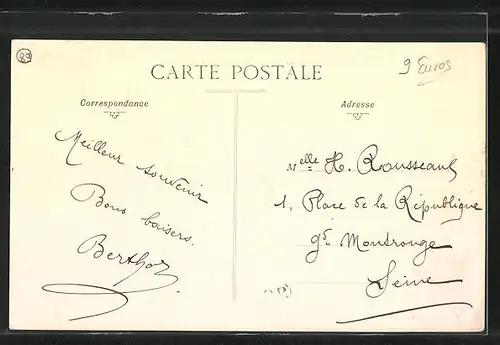 89
9 Euros
CARTE POSTALE
Correspondance
Adresse
Meilleur souvenir
Bons baisers.
Berthe
Melle H. Rousseau
1, Place de la République
gd. Montrouge
Seine